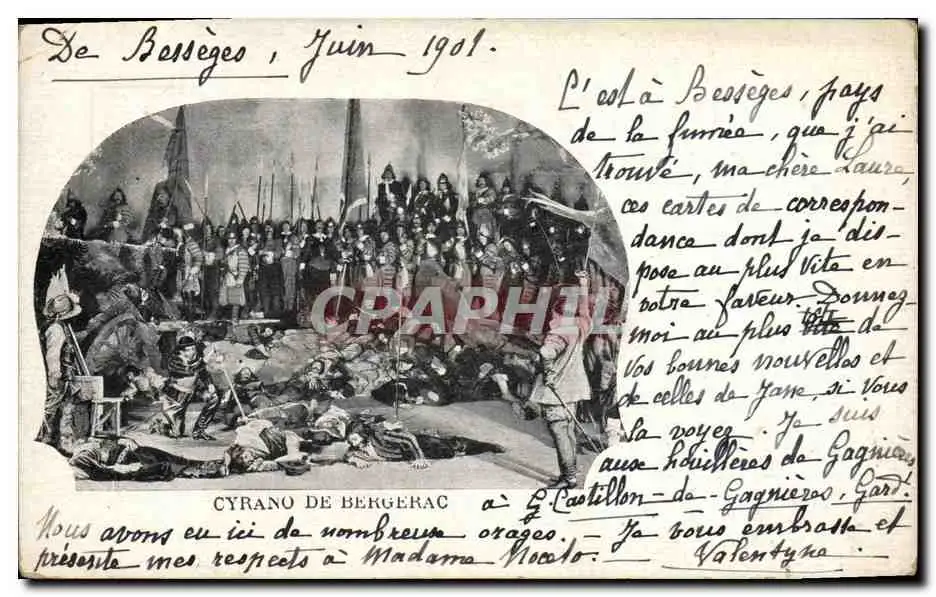 De Bessèges, Juin 1901.
C'est à Bessèges, pays
de la fumée, que j'ai
trouvé, ma chère Laure,
ces cartes de correspon-
dance dont je dis-
pose au plus vite en
votre faveur. Donnez-
moi au plus tôt de
vos bonnes nouvelles et
de celles de Jane, si vous
la voyez. Je suis
aux houillères de Gagnières
à G. Castillon-de-Gagnières, Gard.
CPARPHIL
CYRANO DE BERGERAC
Nous avons eu ici de nombreux orages. - Je vous embrasse et
présente mes respects à Madame Noceto. - Valentyne.